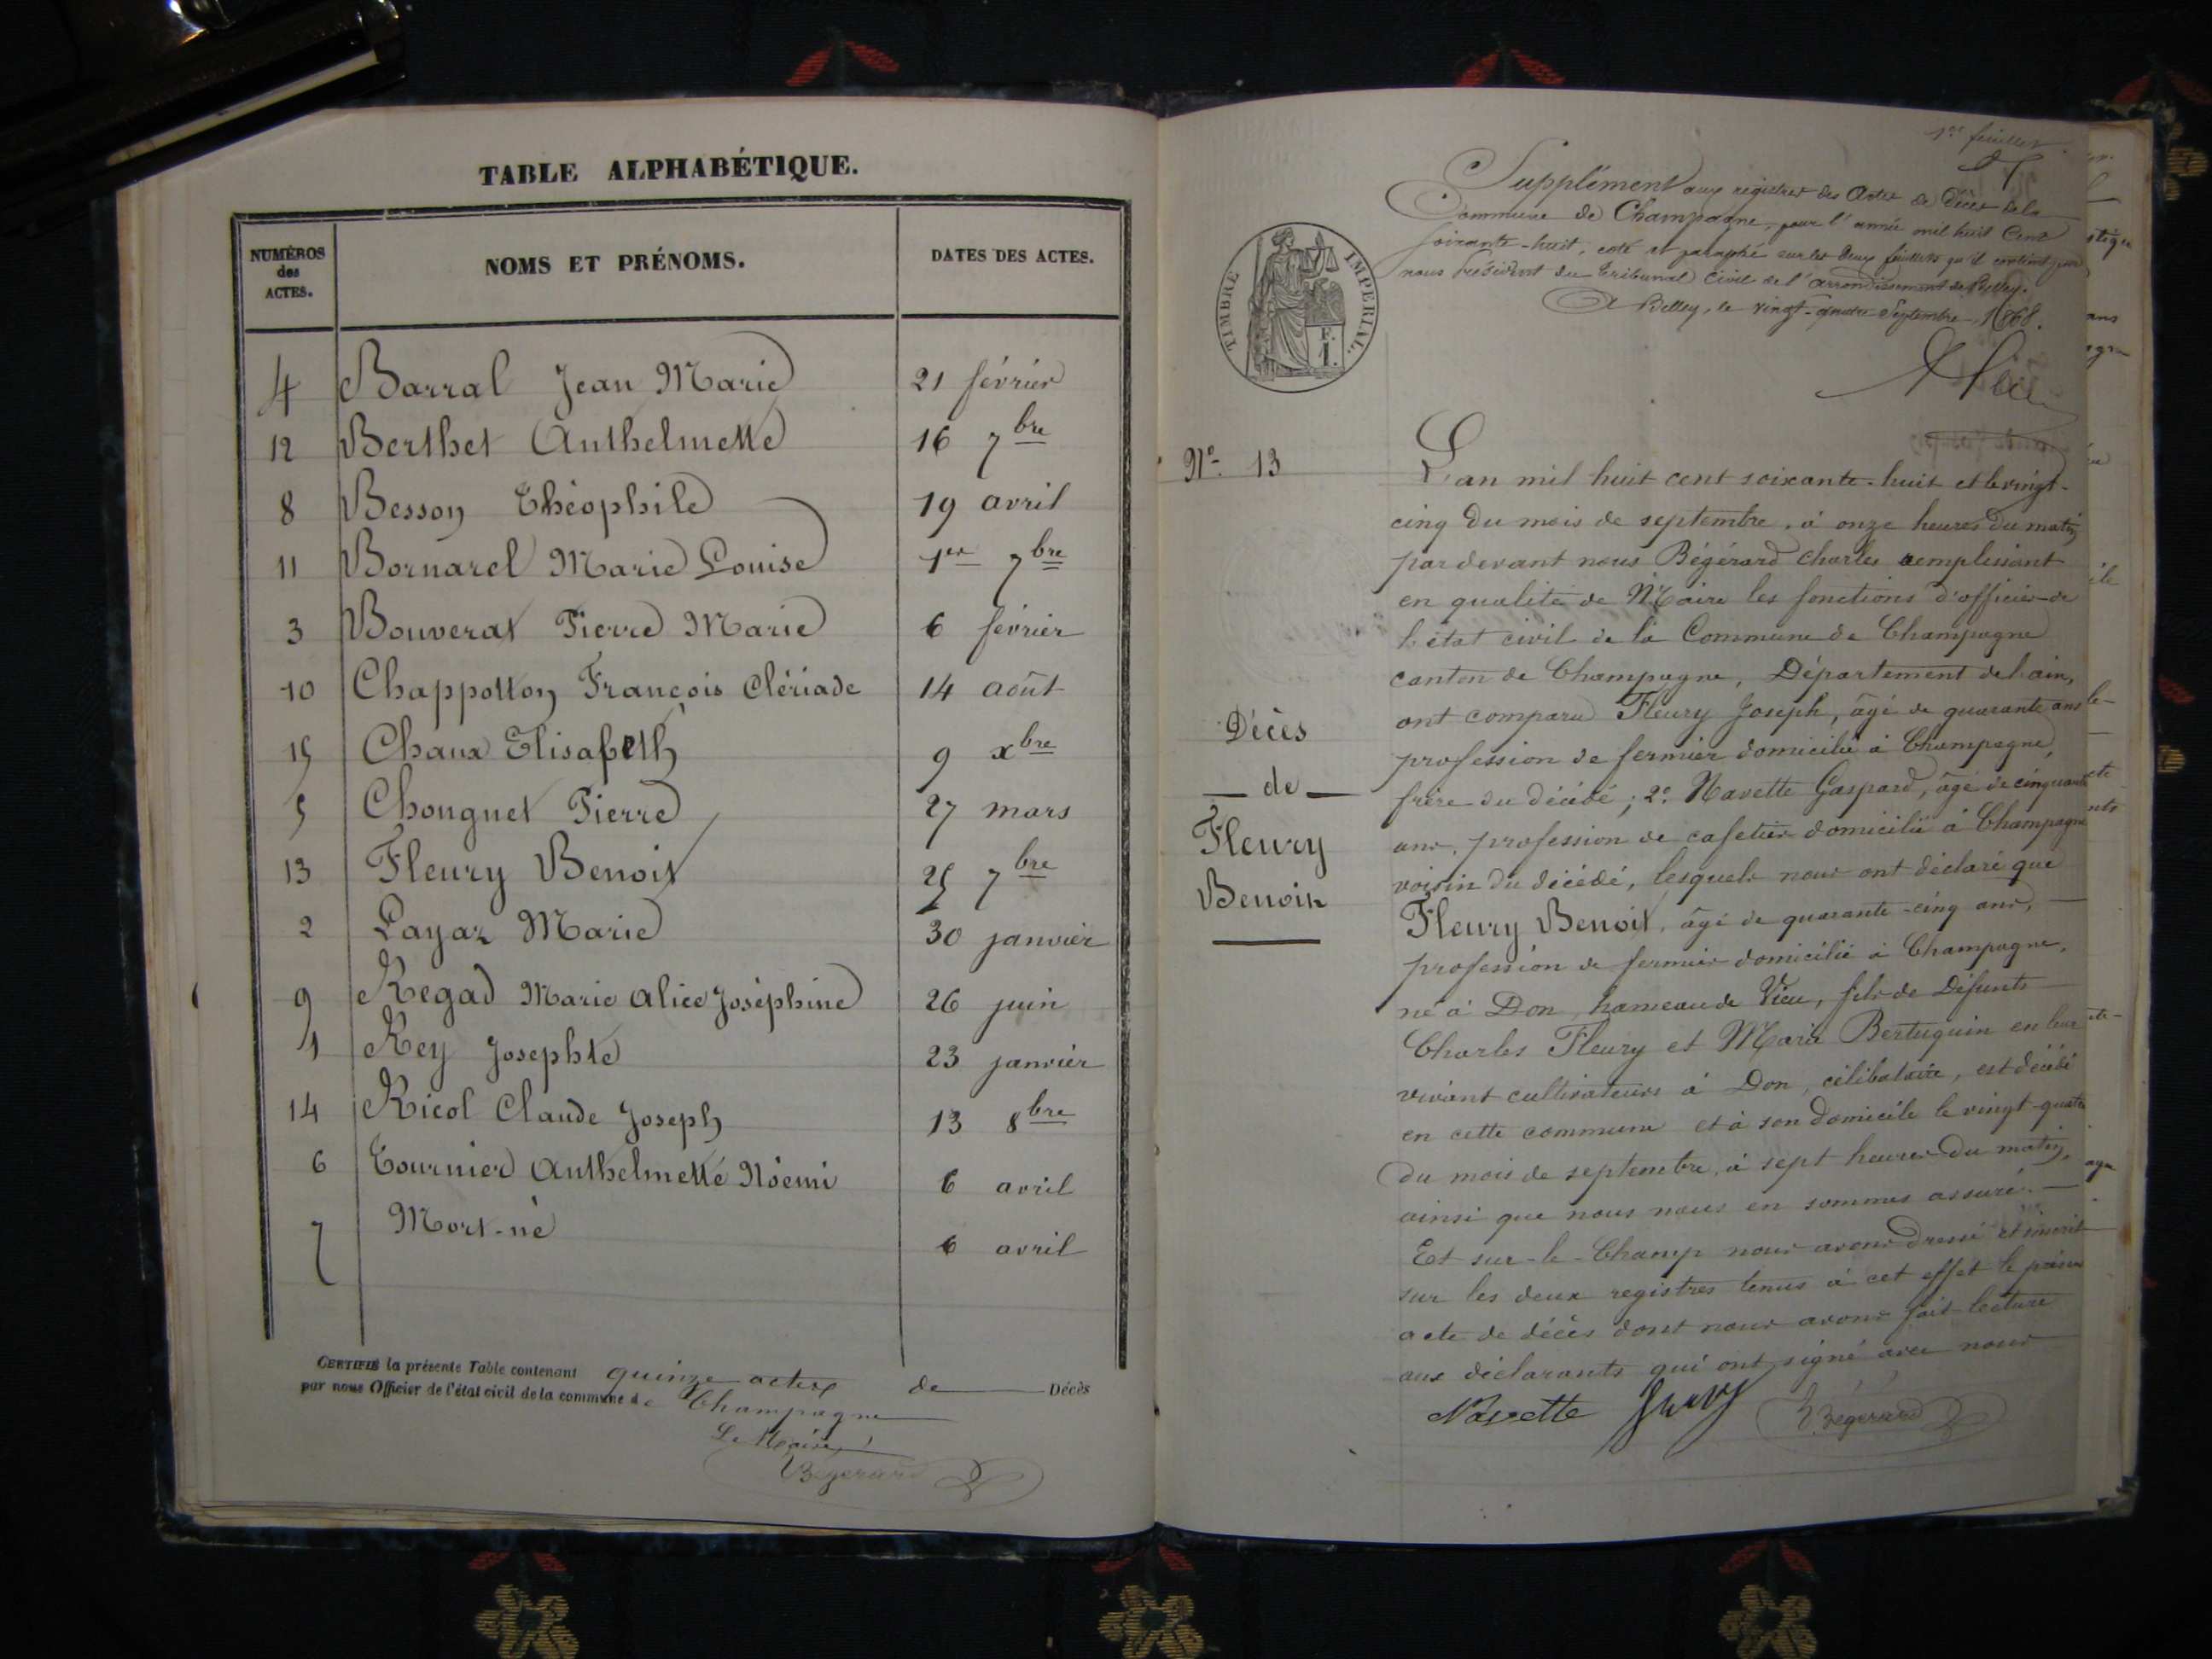 TABLE ALPHABÉTIQUE.
NUMÉROS des ACTES. NOMS ET PRÉNOMS. DATES DES ACTES.
4 Barral Jean Marie 21 février
12 Berthet Anthelmette 16 7bre
8 Besson Théophile 19 avril
11 Bornarel Marie Louise 1er 7bre
3 Bouverat Pierre Marie 6 février
10 Chappotton François Clériade 14 août
15 Chaux Elisabeth 9 xbre
5 Chonguet Pierre 27 mars
13 Fleury Benoit 25 7bre
2 Layaz Marie 30 janvier
9 Regad Marie Alice Joséphine 26 juin
1 Rey Josephte 23 janvier
14 Ricol Claude Joseph 13 8bre
6 Tournier Anthelmette Nöemi 6 avril
7 Mort-né 6 avril
CERTIFIÉ la présente Table contenant quinze actes de Décès
par nous Officier de l'état civil de la commune de Champagne
Le Maire
Bégerard
1er feuillet
Supplément aux registres des Actes de Décès de la
Commune de Champagne, pour l'année mil huit Cent
soixante-huit, coté et paraphé sur les deux feuillets qu'il contient par
nous Président du Tribunal Civil de l'arrondissement de Belley.
A Belley, le vingt-quatre Septembre 1868.
TIMBRE IMPERIAL.
F.
1.
No. 13
L'an mil huit cent soixante-huit et le vingt-
cinq du mois de septembre, à onze heures du matin
pardevant nous Bégérard Charles remplissant
en qualité de Maire les fonctions d'officier de
l'état civil de la Commune de Champagne
canton de Champagne, Département de l'ain,
ont comparu Fleury Joseph, âgé de quarante ans
profession de fermier domicilié à Champagne,
frère du décédé ; 2o. Navette Gaspard, âgé de cinquante
ans, profession de cafetier domicilié à Champagne
voisin du décédé, lesquels nous ont déclaré que
Fleury Benoit, âgé de quarante-cinq ans,
profession de fermier domicilié à Champagne,
né à Don, hameau de Vieu, fils de Défunts
Charles Fleury et Marie Bertuquin en leur
vivant cultivateurs à Don, célibataire, est décédé
en cette commune et à son domicile le vingt-quatre
du mois de septembre, à sept heures du matin,
ainsi que nous nous en sommes assuré.
Et sur-le-Champ nous avons dressé et inscrit
sur les deux registres tenus à cet effet le présent
acte de décès dont nous avons fait lecture
aux déclarants qui ont signé avec nous
Navette Fleury Bégerard
Décès
de
Fleury
Benoit